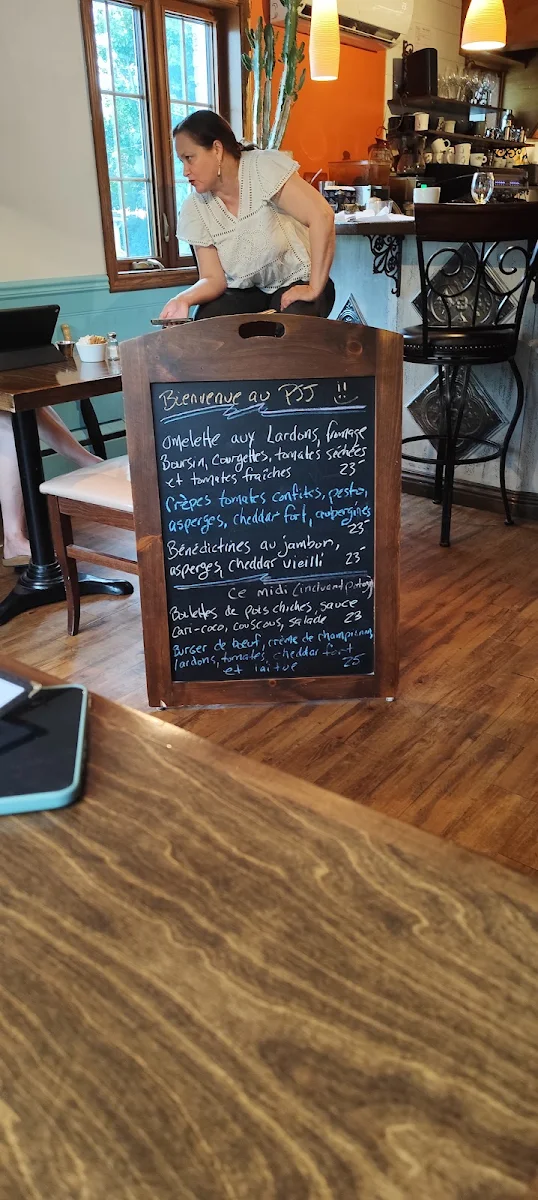 Bienvenue au PJJ
Omelette aux Lardons, fromage
Boursin, Courgettes, tomates séchées
et tomates fraîches 23-
Crêpes tomates confites, pesto,
asperges, cheddar fort, aubergines
23-
Bénédictines au jambon,
asperges, cheddar vieilli 23-
Ce midi (incluant potage)
Boulettes de pois chiches, sauce
Cari-coco, couscous, salade 23
Burger de bœuf, crème de champignons,
lardons, tomates, cheddar fort
et laitue 25-